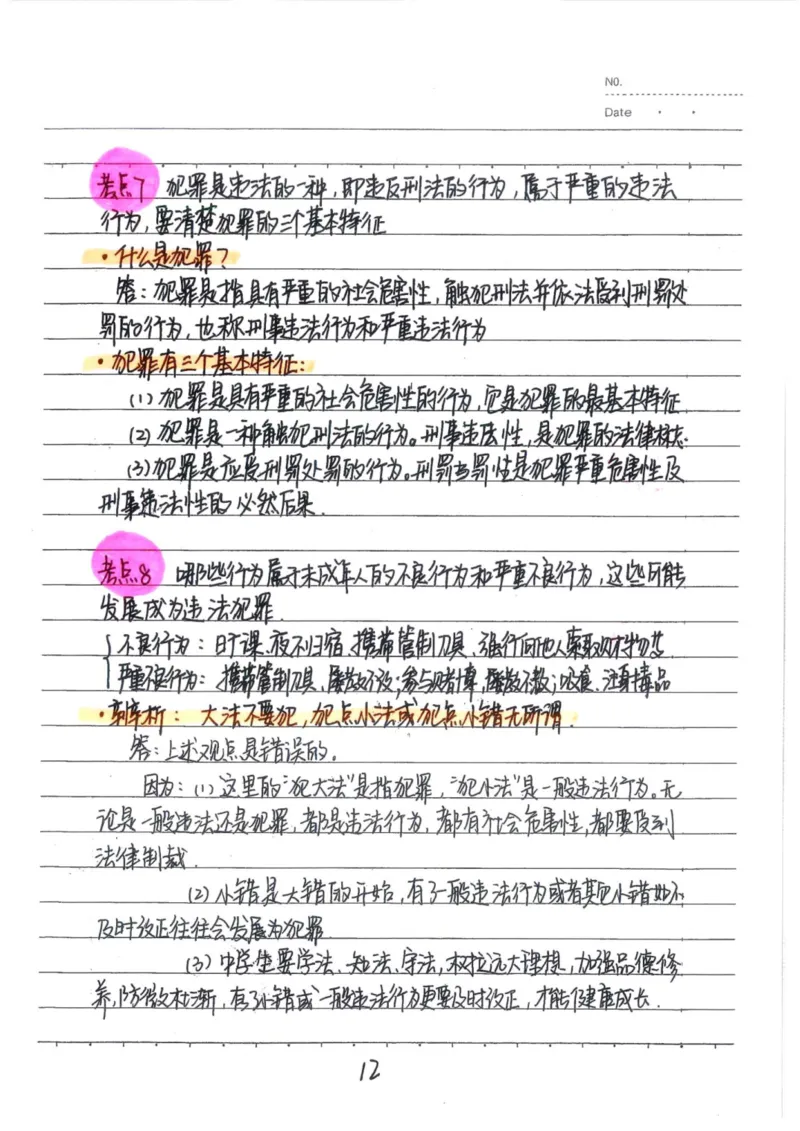 NO.
Date
考点7 犯罪是违法的一种,即违反刑法的行为,属于严重的违法
行为,要清楚犯罪的三个基本特征
·什么是犯罪?
答:犯罪是指具有严重的社会危害性,触犯刑法并依法受到刑罚处
罚的行为,也称刑事违法行为和严重违法行为
·犯罪有三个基本特征:
(1)犯罪是具有严重的社会危害性的行为,它是犯罪的最基本特征.
(2)犯罪是一种触犯刑法的行为。刑事违法性,是犯罪的法律标志
(3)犯罪是应受刑罚处罚的行为。刑罚当罚性是犯罪严重危害性及
刑事违法性的必然后果.
考点8 哪些行为属于未成年人的不良行为和严重不良行为,这些可能
发展成为违法犯罪.
不良行为:旷课、夜不归宿、携带管制刀具、强行向他人索取财物等.
严重不良行为:携带管制刀具,屡教不改;参与赌博,屡教不改;吸食、注射毒品
·辨析:大法不要犯,犯点小法或犯点小错无所谓.
答:上述观点是错误的。
因为:(1)这里的“犯大法”是指犯罪,“犯小法”是一般违法行为。无
论是一般违法还是犯罪,都是违法行为,都有社会危害性,都要受到
法律制裁.
(2)小错是大错的开始,有了一般违法行为或者其他小错如不
及时改正往往会发展为犯罪.
(3)中学生要学法、知法、守法,树立远大理想,加强品德修
养,防微杜渐,有了小错或一般违法行为更要及时改正,才能健康成长.
12